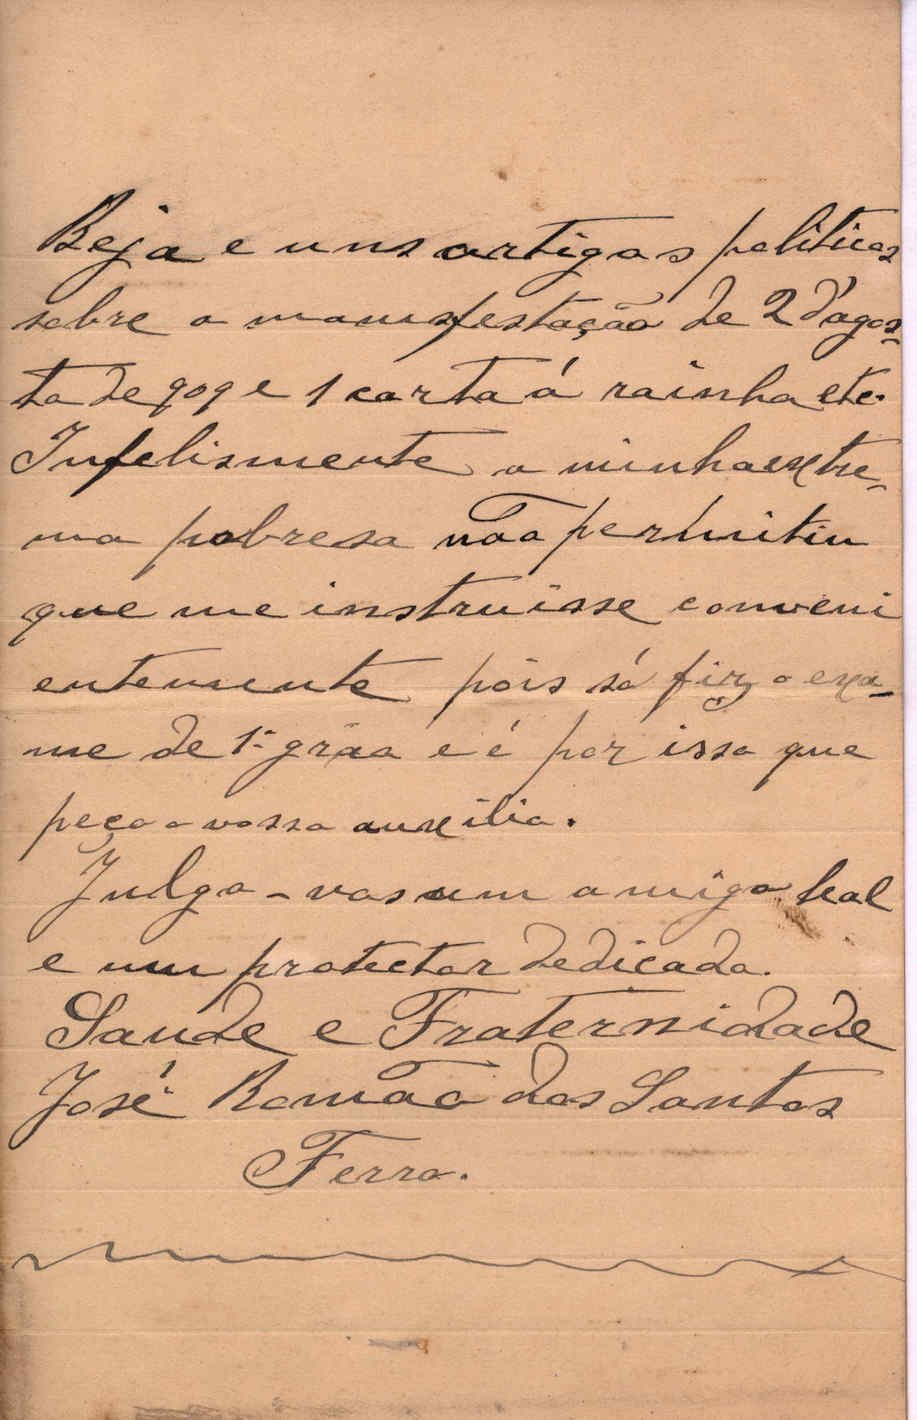 Beja e uns artigos politicos
sobre a manisfestação de 2 d'agos-
to de 909 e 1 carta á rainha etc.
Infelismente a minha extre-
ma pobresa não permitiu
que me instruisse conveni
entemente pois só fiz o exa-
me de 1º gráo e é por isso que
peço o vosso auxilio.
Julgo-vos um amigo leal
e um protector dedicado.
Saude e Fraternidade
José Romão dos Santos
Ferro.